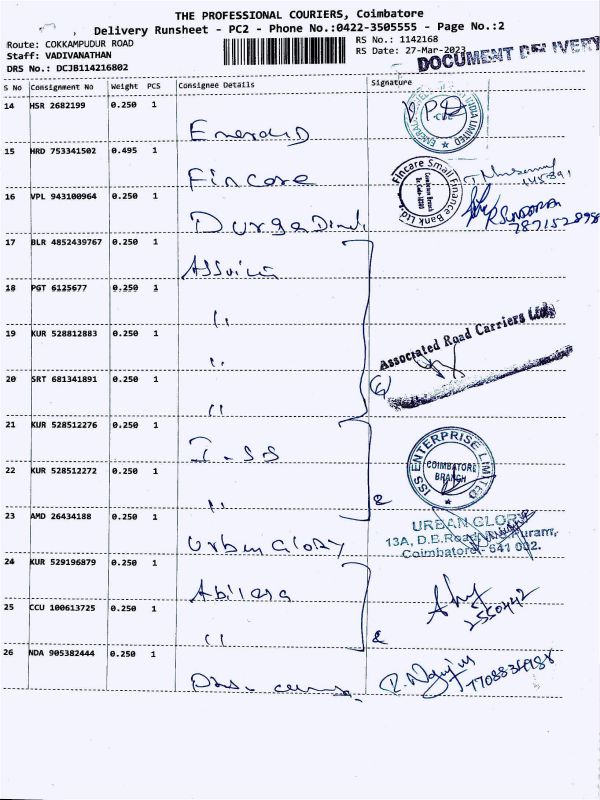 THE PROFESSIONAL COURIERS, Coimbatore
Delivery Runsheet - PC2 - Phone No.:0422-3505555 - Page No.:2
Route: COKKAMPUDUR ROAD
RS No.: 1142168
Staff: VADIVANATHAN
RS Date: 27-Mar-2023
DRS No.: DCJB114216802
DOCUMENT DELIVERY
S No Consignment No Weight PCS Consignee Details Signature
14 HSR 2682199 0.250 1
Emerald
15 HRD 753341502 0.495 1
Fincare
Fincare Small Finance Bank Ltd.
16 VPL 943100964 0.250 1
Durga
7871528985
17 BLR 4852439767 0.250 1
18 PGT 6125677 0.250 1
"
19 KUR 528812883 0.250 1
"
Associated Road Carriers Ltd.
20 SRT 681341891 0.250 1
"
21 KUR 528512276 0.250 1
I-SS
ISS ENTERPRISE LIMITED
COIMBATORE
BRANCH
22 KUR 528512272 0.250 1
"
23 AMD 26434188 0.250 1
Urben Glory
URBAN GLORY
13A, D.B.Road, Puram,
Coimbatore - 641 002.
24 KUR 529196879 0.250 1
2550442
25 CCU 100613725 0.250 1
"
26 NDA 905382444 0.250 1